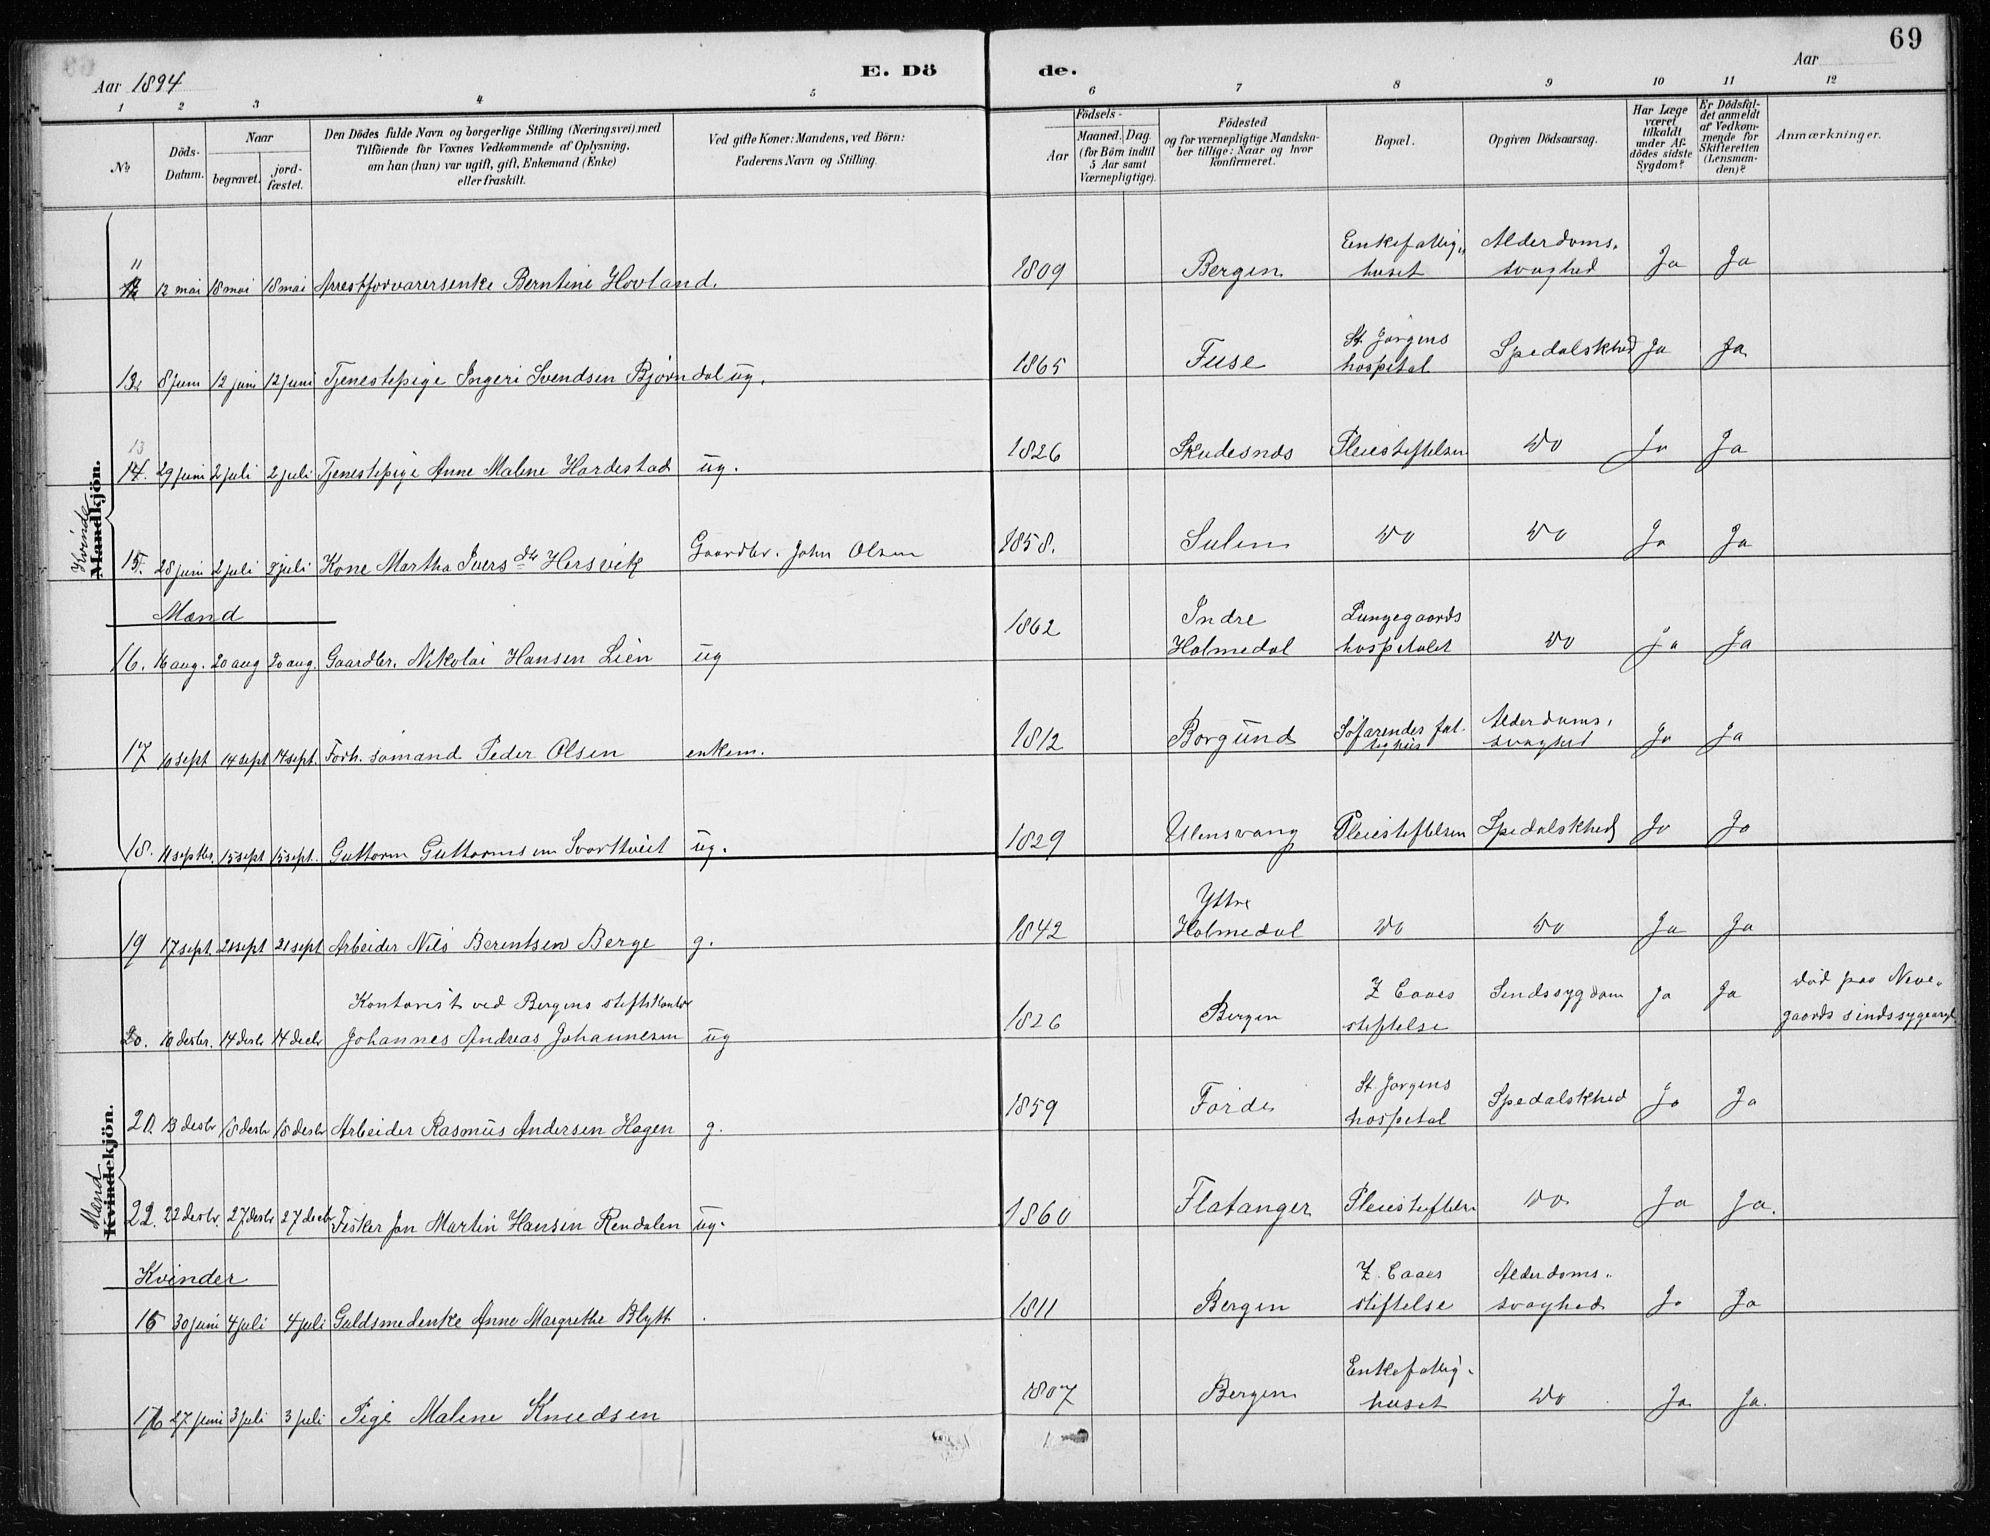 69
Aar 1894
E. Dö
de.
Aar
1 2 3 4 5 6 7 8 9 10 11 12
№
Döds-
Datum.
Naar
begravet.
jord-
fæstet.
Den Dödes fulde Navn og borgerlige Stilling (Næringsvei), med
Tilföiende for Voxnes Vedkommende af Oplysning,
om han (hun) var ugift, gift, Enkemand (Enke)
eller fraskilt.
Ved gifte Koner: Mandens, ved Börn:
Faderens Navn og Stilling.
Födsels-
Aar
Maaned. Dag.
(for Börn indtil
5 Aar samt
Værnepligtige).
Födested
og for værnepligtige Mandska-
ber tillige: Naar og hvor
konfirmeret.
Bopæl.
Opgiven Dödsaarsag.
Har Læge
været
tilkaldt
under Af-
dödes sidste
Sygdom?
Er Dödsfal-
det anmeldt
af Vedkom-
mende for
Skifteretten
(Lensman-
den)?
Anmærkninger.
Kvinde
Mandkjön.
11 12 mai 18 mai 18 mai Arrestforvarersenke Berntine Hovland. 1809 Bergen Enkefattig- huset Alderdoms- svaghed Ja Ja
12 8 juni 12 juni 12 juni Tjenestepige Ingeri Svendsen Bjørndal ug. 1865 Fuse St Jørgens hospital Spedalskhed Ja Ja
13
14. 29 juni 2 juli 2 juli Tjenestepige Anne Malene Hardestad ug. 1826 Skudesnæs Pleiestiftelsen Do Ja Ja
15. 28 juni 2 juli 2 juli Kone Martha Ivers dtr Hersvik Gaardbr. John Olsen 1858. Sulen Do Do Ja Ja
Mænd
16. 16 aug. 20 aug 20 aug. Gaardbr. Nikolai Hansen Lien ug 1862 Indre Holmedal Lungegaards hospitalet Do Ja Ja
17 10 sept 14 sept 14 sept. Forh. sømand Peder Olsen enkem. 1812 Borgund Søfarendes fat- tighus Alderdoms- svaghed Ja Ja
18. 11 septbr. 15 sept 15 sept. Guttorm Guttormsen Svorttveit ug. 1829 Ulensvang Pleiestiftelsen Spedalskhed Ja Ja
Mænd
Kvindekjön.
19 17 sept. 21 sept 21 sept Arbeider Nils Berentsen Berge g. 1842 Yttre Holmedal Do Do Ja Ja
Kontorist ved Bergens stiftskontor
20. 10 desbr. 14 desbr 14 decbr Johannes Andreas Johannesen ug 1826 Bergen Z Caaes stiftelse Sindssygdom Ja Ja Død paa Neve- gaards sindssygeasyl.
21. 13 desbr 18 desbr 18 desbr Arbeider Rasmus Andersen Hagen g. 1859 Førde St. Jørgens hospital Spedalskhed Ja Ja
22. 22 desbr. 27 desbr 27 decbr Fisker Jon Martin Hansen Rendalen ug. 1860 Flatanger Pleiestiftelsen Do Ja Ja.
Kvinder
16 30 juni 4 juli 4 juli Guldsmedenke Anne Margrethe Blytt. 1811 Bergen Z. Caaes stiftelse Alderdoms- svaghed Ja Ja
17 27 juni 3 juli 3 juli Pige Malene Knudsen 1807 Bergen Enkefattig- huset Do Ja Ja.